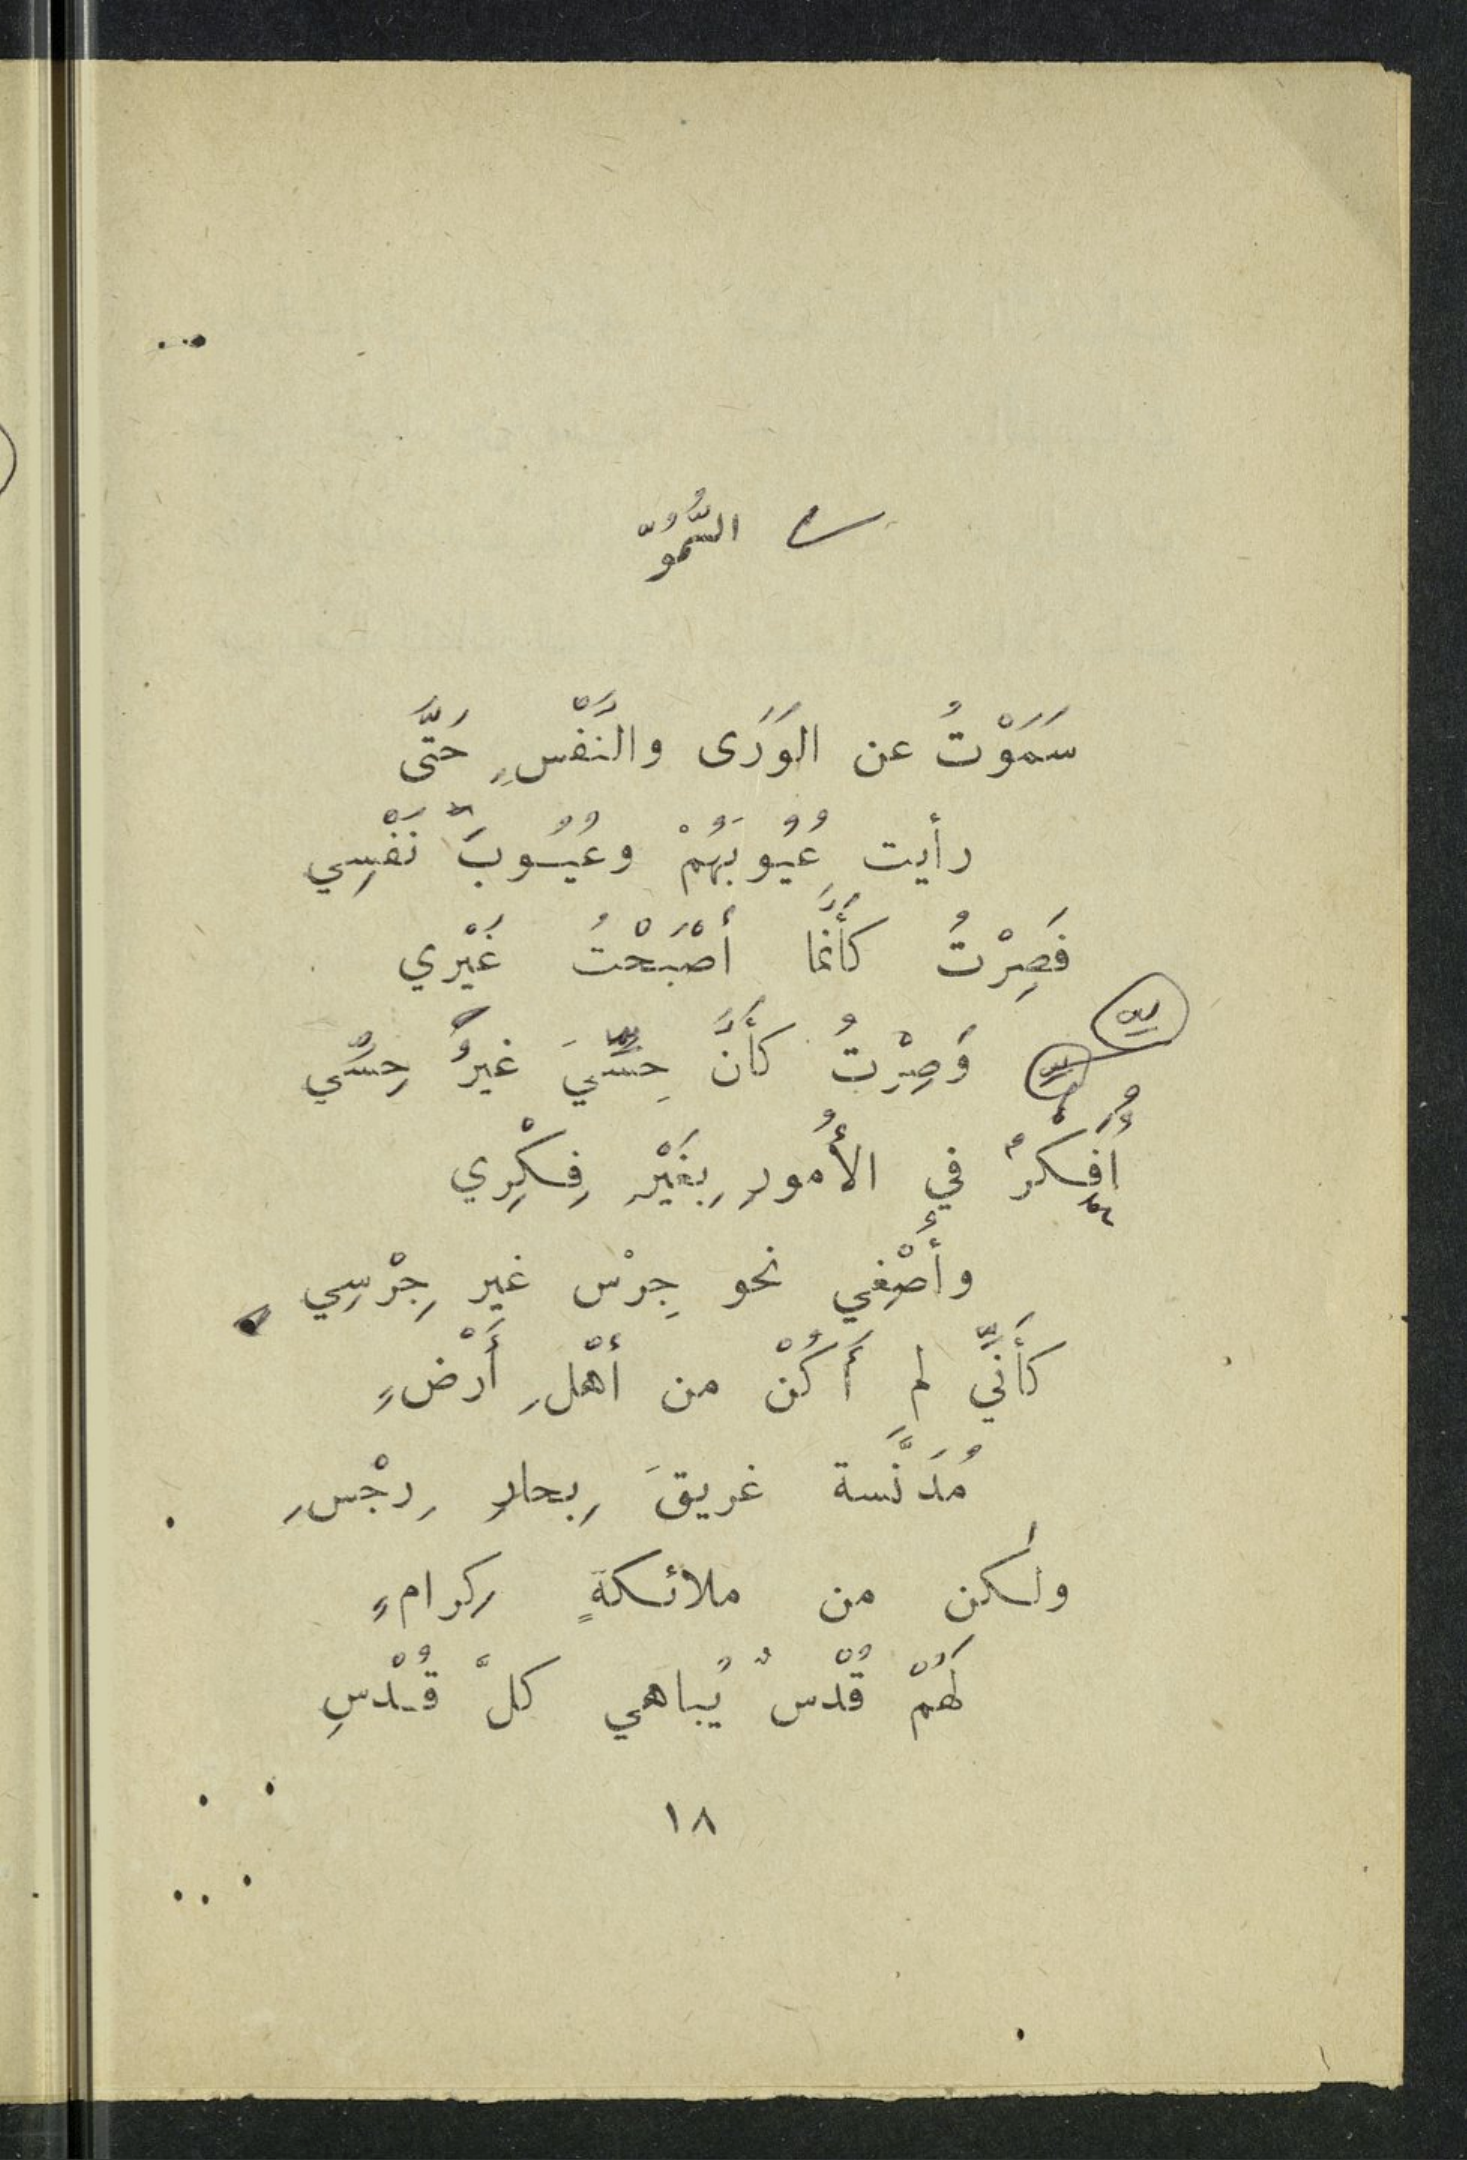 السُّمُوّ
سَمَوْتُ عن الوَرَى والنَّفْسِ حَتَّى
رأيت عُيُوبَهُمْ وعُيُوبَ نَفْسِي
فَصِرْتُ كأَنَّما أصْبَحْتُ غَيْري
وَصِرْتُ كأَنَّ حِسِّيَ غيرُ حِسِّي
أُفِكْرُ في الأُمورِ بِغَيْرِ فِكْرِي
وأُصْغِي نحو جِرْس غير جِرْسِي
كأَنِّي لم أَكُنْ من أهْلِ أَرْضٍ
مُدَنَّسة غريقَ بِحارِ رِجْسِ
ولكن من ملائكةٍ كِرامٍ
لَهُمْ قُدْسٌ يُباهي كلَّ قُدْسِ
١٨